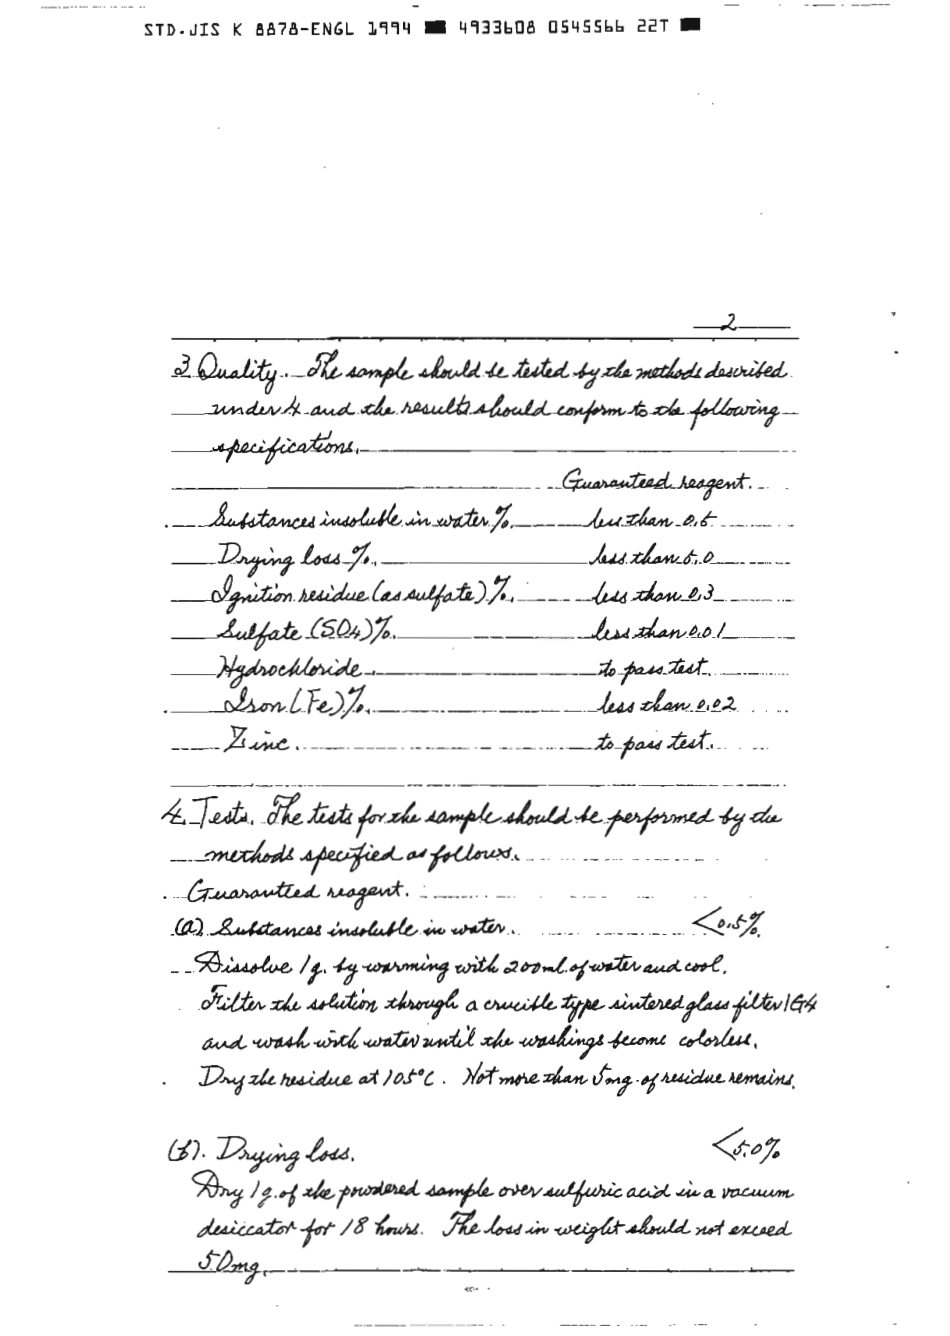 STD.JIS K 8878-ENGL 1994 ■ 4933608 0545566 22T ■
2
3 Quality. The sample should be tested by the methods described
under 4 and the results should conform to the following
specifications.
Guaranteed reagent.
Substances insoluble in water %. less than 0.5
Drying loss %. less than 5.0
Ignition residue (as sulfate) %. less than 0.3
Sulfate (SO4) %. less than 0.01
Hydrochloride. to pass test.
Iron (Fe) %. less than 0.02
Zinc. to pass test.
4. Tests. The tests for the sample should be performed by the
methods specified as follows.
Guaranteed reagent.
(a) Substances insoluble in water. <0.5%
Dissolve 1g. by warming with 200ml. of water and cool.
Filter the solution through a crucible type sintered glass filter 1G4
and wash with water until the washings become colorless.
Dry the residue at 105°C. Not more than 5mg. of residue remains.
(b). Drying loss. <5.0%
Dry 1g. of the powdered sample over sulfuric acid in a vacuum
desiccator for 18 hours. The loss in weight should not exceed
50mg.